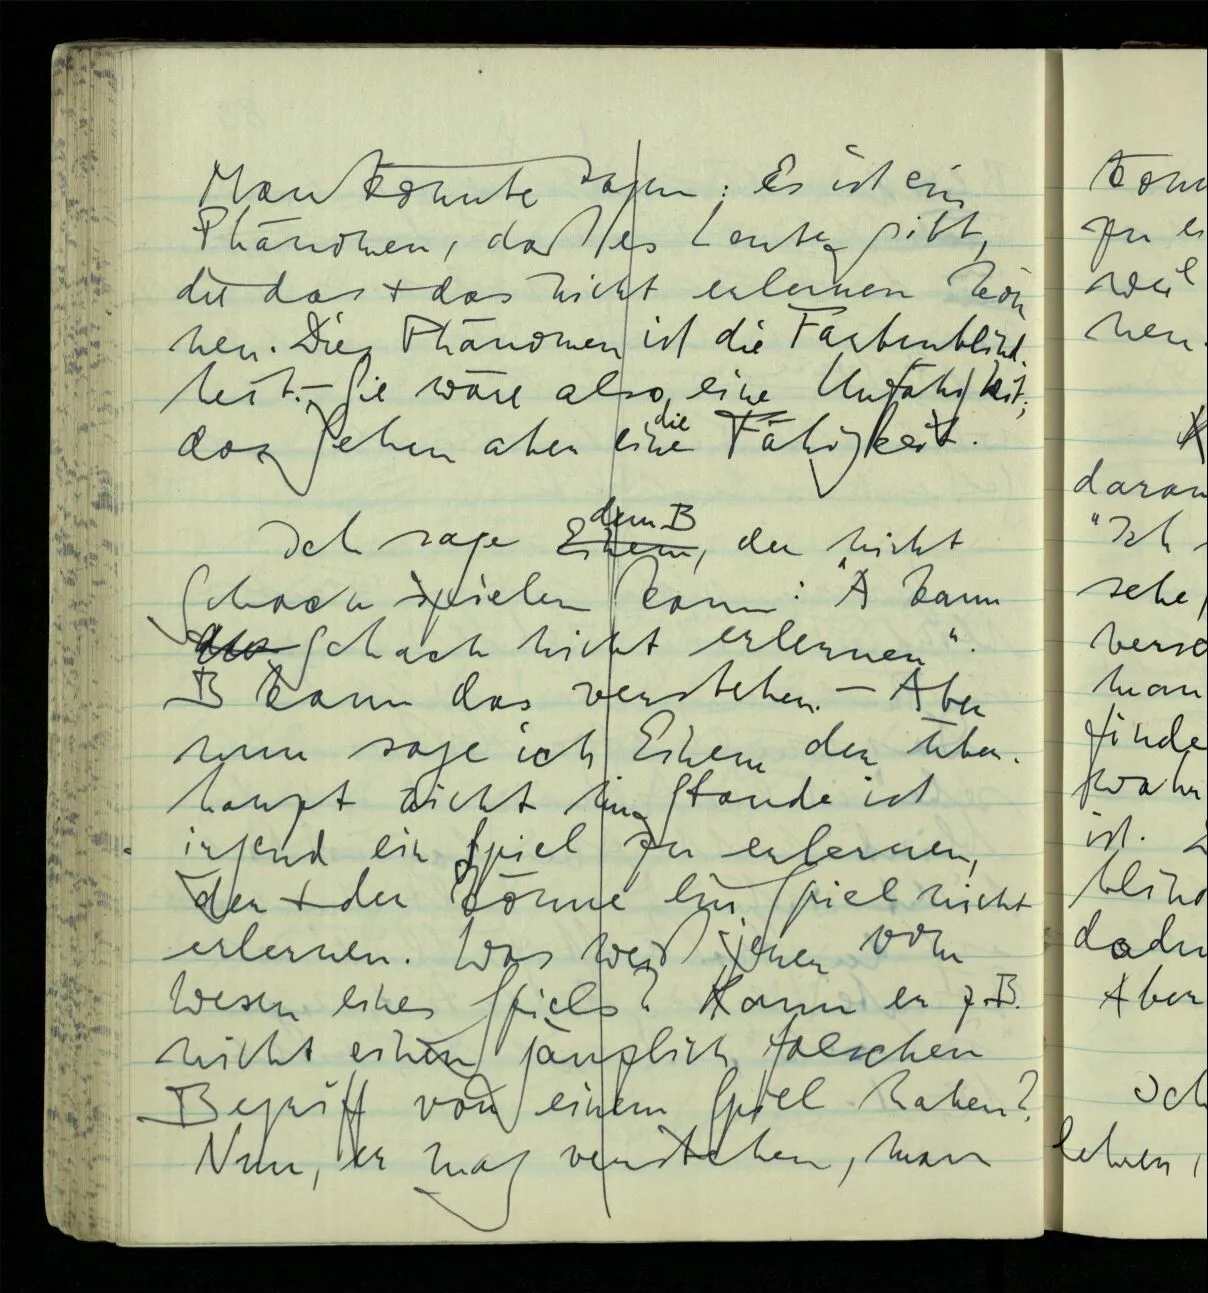 Man könnte sagen: Es ist ein
Phänomen, daß es Leute gibt,
die das + das nicht erlernen kön
nen. Dies Phänomen ist die Farbenblind-
heit. – Sie wäre also eine Unfähigkeit;
das Sehen aber eine die Fähigkeit.
Ich sage Einem dem B, der nicht
Schach spielen kann: "A kann
das Schach nicht erlernen".
B kann das verstehen. – Aber
nun sage ich Einem der über-
haupt nicht im Stande ist
irgend ein Spiel zu erlernen,
der + der könne ein Spiel nicht
erlernen. Was weiß jener vom
Wesen eines Spiels? Kann er z.B.
nicht einen gänzlich falschen
Begriff von einem Spiel haben?
Nun, er mag verstehen, man
könn
zu e
weil
nen.
daran
"Ich
sehe,
man
finde
wahr
ist.
blind
dadu
Aber
Ich
lehren,